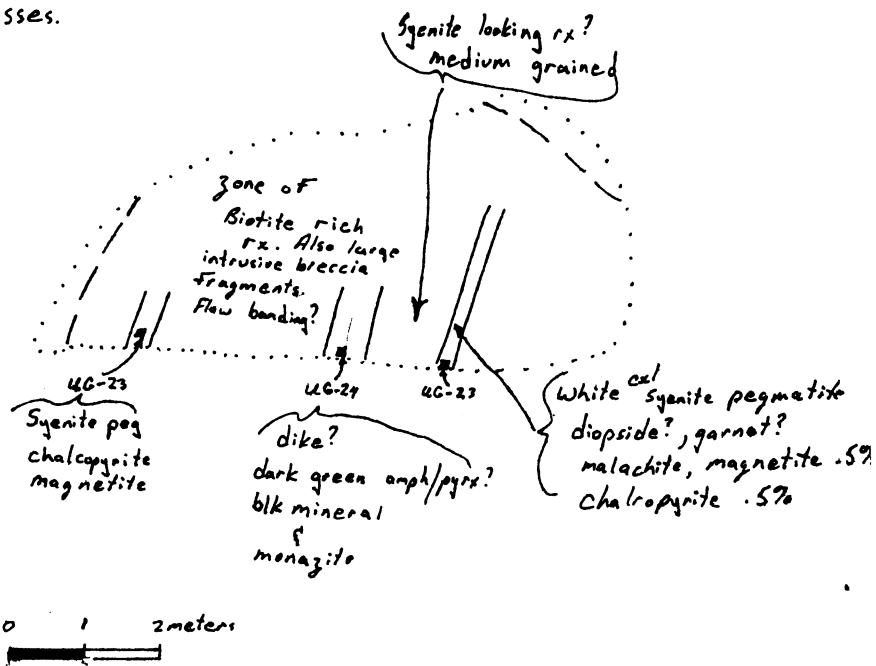 sses.
Syenite looking rx?
medium grained
zone of
Biotite rich
rx. Also large
intrusive breccia
fragments.
Flow banding?
UG-23
UG-24
UG-23
Syenite peg
chalcopyrite
magnetite
dike?
dark green amph/pyrx?
blk mineral
&
monazite
White cxl syenite pegmatite
diopside?, garnet?
malachite, magnetite .5%
chalcopyrite .5%
0 1 2 meters